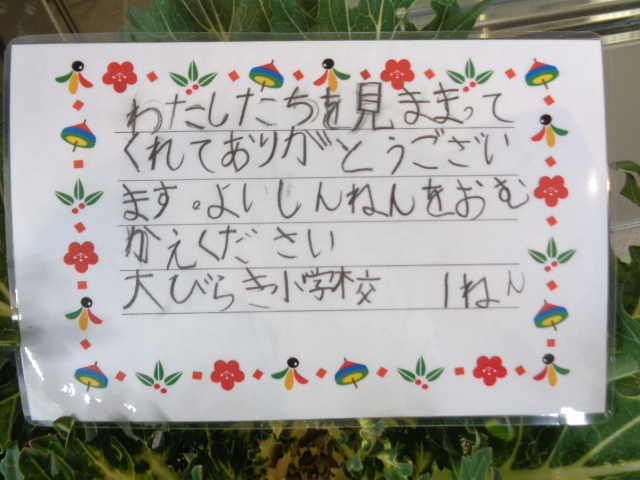 わたしたちを見ままって
くれておりがとうござい
ます。よいしんねんをおむ
かえください
大びらき小学校 1ねん